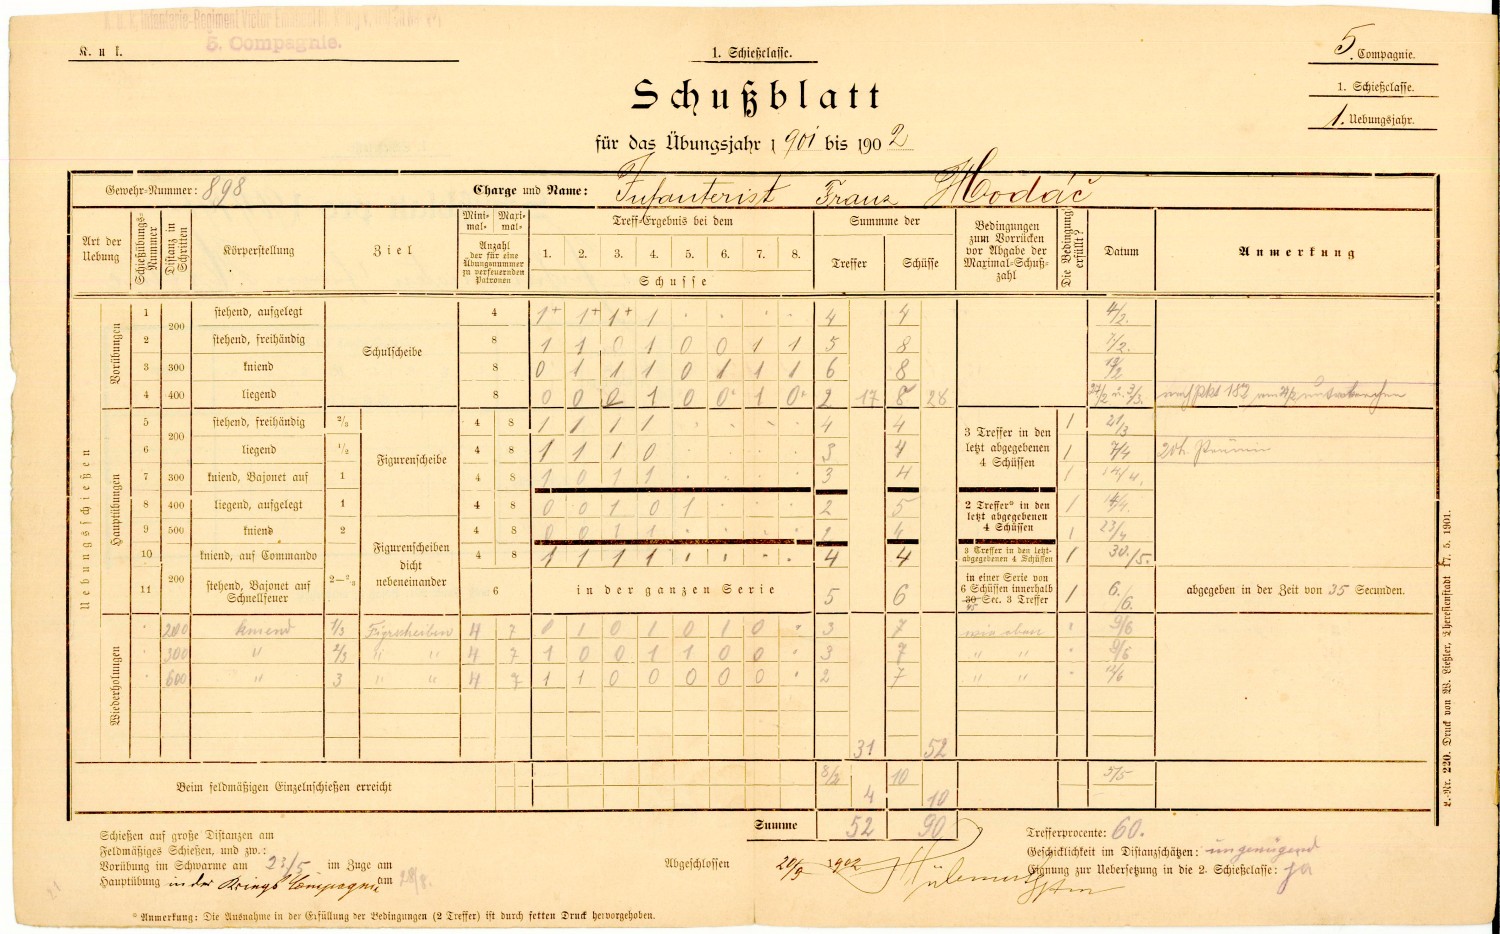 K. u. k. Infanterie-Regiment Victor Emanuel
5. Compagnie.
K. u k.
1. Schießclasse.
5. Compagnie.
1. Schießclasse.
1. Uebungsjahr.
Schußblatt
für das Übungsjahr 1901 bis 1902
Gewehr-Nummer: 898 Charge und Name: Infanterist Franz Hodáč
Art der Uebung Schießübungs-Nummer Distanz in Schritten Körperstellung Ziel Mini-mal- Maxi-mal- Anzahl der für eine Übungsnummer zu verfeuernden Patronen Treff-Ergebnis bei dem 1. 2. 3. 4. 5. 6. 7. 8. Schusse Summe der Treffer Schüsse Bedingungen zum Vorrücken vor Abgabe der Maximal-Schuß-zahl Die Bedingung erfüllt? Datum Anmerkung
Uebungsschießen
Vorübungen
1 200 stehend, aufgelegt Schulscheibe 4 1+ 1+ 1+ 1 4 4 4/2.
2 stehend, freihändig 8 1 1 0 1 0 0 1 1 5 8 7/2.
3 300 kniend 8 0 1 1 1 0 1 1 1 6 8 13/2
4 400 liegend 8 0 0 0 1 0 0 1 0 2 17 8 28 27/2 u. 3/3.
Hauptübungen
5 200 stehend, freihändig 2/3 Figurenscheibe 4 8 1 1 1 1 4 4 3 Treffer in den letzt abgegebenen 4 Schüssen 1 21/3
6 liegend 1/2 4 8 1 1 1 0 3 4 1 7/4
7 300 kniend, Bajonet auf 1 4 8 1 0 1 1 3 4 1 14/4.
8 400 liegend, aufgelegt 1 4 8 0 0 1 0 1 2 5 2 Treffer* in den letzt abgegebenen 4 Schüssen 1 14/4.
9 500 kniend 2 Figurenscheiben dicht nebeneinander 4 8 0 0 1 1 2 4 1 23/4
10 200 kniend, auf Commando 4 8 1 1 1 1 4 4 3 Treffer in den letzt-abgegebenen 4 Schüssen 1 30./5.
11 stehend, Bajonet auf Schnellfeuer 6 in der ganzen Serie 5 6 in einer Serie von 6 Schüssen innerhalb 30 45 Sec. 3 Treffer 1 6./6. abgegeben in der Zeit von 35 Secunden.
Wiederholungen
200 kniend 1/3 Figrscheiben 4 7 0 1 0 1 0 1 0 3 7 wie oben 9/6
300 " 2/3 " " 4 7 1 0 0 1 1 0 0 3 7 " " 9/6
600 " 3 " " 4 7 1 1 0 0 0 0 0 2 7 " " 12/6
31 52
Beim feldmäßigen Einzelnschießen erreicht 8/2 4 10 10 5/5
Summe 52 90
Schießen auf große Distanzen am
Feldmäßiges Schießen, und zw.:
Vorübung im Schwarme am 23/5 im Zuge am
Hauptübung in der Kriegs Compagnie am
Abgeschlossen 20/9 1902
Trefferprocente: 60.
Geschicklichkeit im Distanzschätzen: ungenügend
Eignung zur Uebersetzung in die 2. Schießclasse: ja
* Anmerkung: Die Ausnahme in der Erfüllung der Bedingungen (2 Treffer) ist durch fetten Druck hervorgehoben.
L.-Nr. 220. Druck von W. Ließler, Theresienstadt 17. 5. 1901.